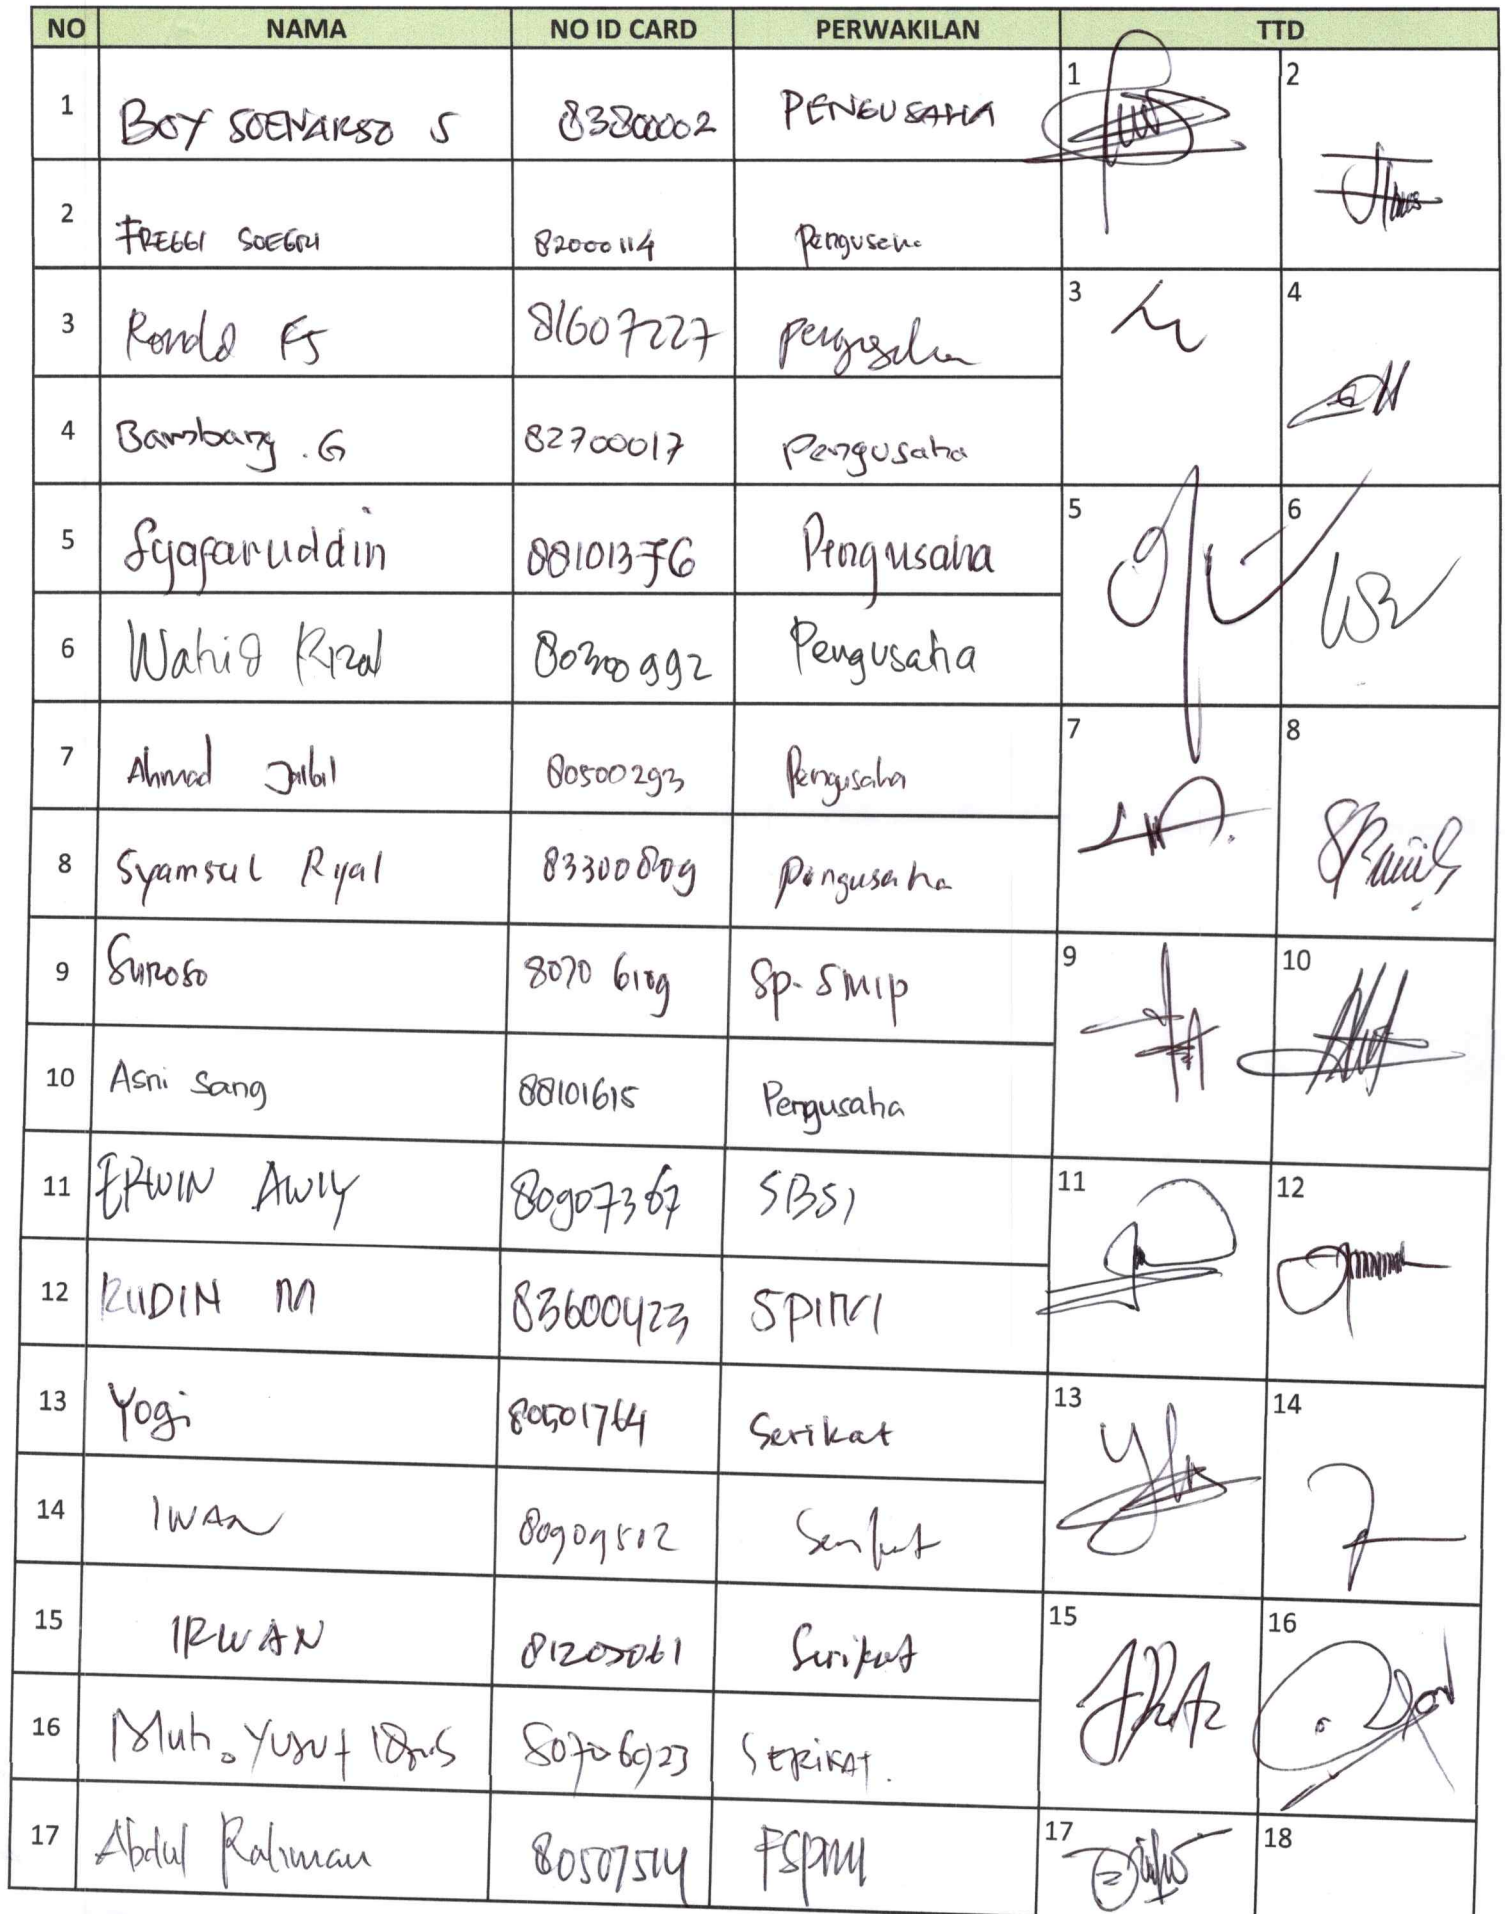 NO NAMA NO ID CARD PERWAKILAN TTD
1 BOY SOENARSO S 83800002 PENGUSAHA 1 2
2 FREGGI SOEGRI 82000114 Pengusaha
3 Ronald FS 81607227 pengusaha 3 4
4 Bambang . G 82700017 pengusaha
5 Syafaruddin 88101376 Pengusaha 5 6
6 Wahid Rizal 80300992 Pengusaha
7 Ahmad Jalal 80500293 Pengusaha 7 8
8 Syamsul Ryal 83300809 pengusaha
9 Suroso 80706109 Sp-SMIP 9 10
10 Asni Sang 88101615 Pengusaha
11 ERWIN AWIY 80907367 SBSI 11 12
12 RUDIN M 83600423
13 Yogi 80501764 Serikat 13 14
14 IWAN Serikat
15 IRWAN Serikat 15 16
16 Muh. Yusuf SERIKAT.
17 Abdul Rahman 80507514 FSPMI 17 18